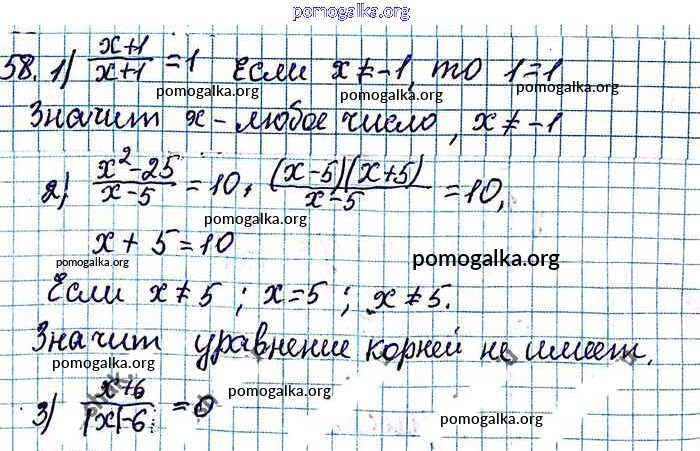 pomogalka.org
58. 1) x+1/x+1 = 1 Если x ≠ -1, то 1=1
pomogalka.org pomogalka.org pomogalka.org
Значит x - любое число, x ≠ -1
2) x²-25/x-5 = 10, (x-5)(x+5)/x-5 = 10,
pomogalka.org
x + 5 = 10
pomogalka.org pomogalka.org
Если x ≠ 5 ; x = 5 ; x ≠ 5.
Значит уравнение корней не имеет.
pomogalka.org pomogalka.org pomogalka.org
3) x+6/|x|-6 = 0
pomogalka.org